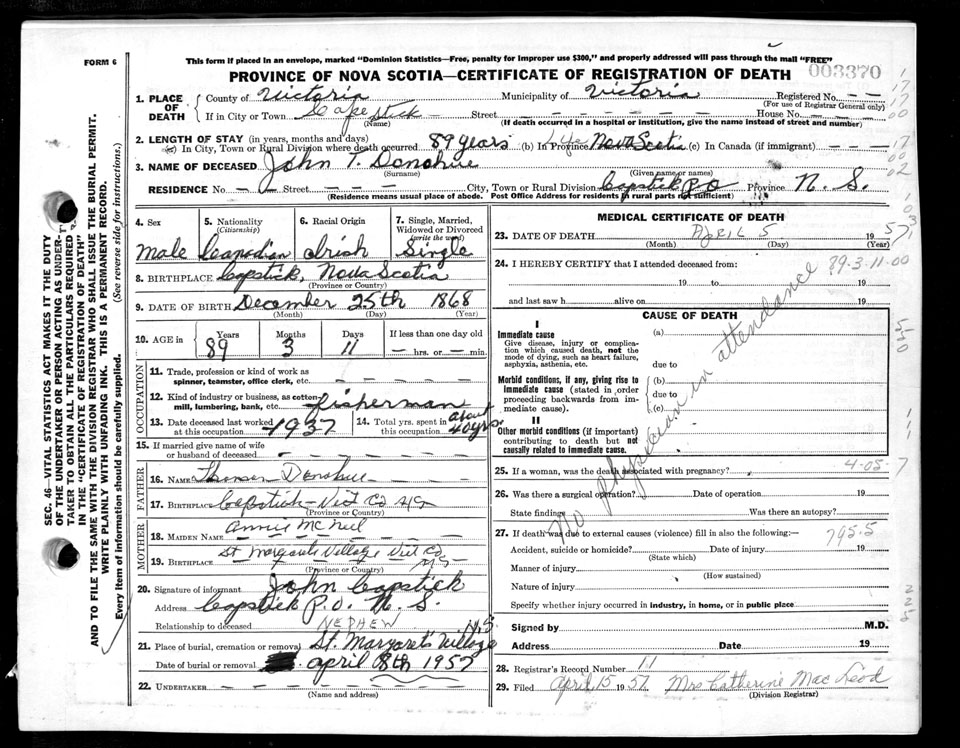 FORM 6
This form if placed in an envelope, marked "Dominion Statistics—Free, penalty for improper use $300," and properly addressed will pass through the mail "FREE"
PROVINCE OF NOVA SCOTIA—CERTIFICATE OF REGISTRATION OF DEATH
003370
SEC. 46—VITAL STATISTICS ACT MAKES IT THE DUTY
OF THE UNDERTAKER OR PERSON ACTING AS UNDER-
TAKER TO OBTAIN ALL THE PARTICULARS REQUIRED
IN THE "CERTIFICATE OF REGISTRATION OF DEATH"
AND TO FILE THE SAME WITH THE DIVISION REGISTRAR WHO SHALL ISSUE THE BURIAL PERMIT.
WRITE PLAINLY WITH UNFADING INK. THIS IS A PERMANENT RECORD.
Every item of information should be carefully supplied. (See reverse side for instructions.)
1. PLACE OF DEATH
County of Victoria Municipality of Victoria Registered No. — —
(For use of Registrar General only)
If in City or Town Capstick — Street — — — House No. — —
(Name) (If death occurred in a hospital or institution, give the name instead of street and number)
2. LENGTH OF STAY (in years, months and days)
(a) In City, Town or Rural Division where death occurred 89 years (b) In Province Life Nova Scotia (c) In Canada (if immigrant) — — —
3. NAME OF DECEASED John T. Donohue
(Surname) (Given name or names)
RESIDENCE No — — Street — — — City, Town or Rural Division Capstick P.O Province N. S.
(Residence means usual place of abode. Post Office Address for residents in rural parts not sufficient)
4. Sex 5. Nationality (Citizenship) 6. Racial Origin 7. Single, Married, Widowed or Divorced (write the word)
Male Canadian Irish Single
8. BIRTHPLACE Capstick, Nova Scotia
(Province or Country)
9. DATE OF BIRTH December 25th 1868
(Month) (Day) (Year)
10. AGE in Years Months Days If less than one day old
89 3 11 — hrs. or — min.
OCCUPATION
11. Trade, profession or kind of work as
spinner, teamster, office clerk, etc. — — — —
12. Kind of industry or business, as cotton-
mill, lumbering, bank, etc. fisherman
13. Date deceased last worked at this occupation 1937 14. Total yrs. spent in this occupation about 40 yrs
15. If married give name of wife
or husband of deceased — — — —
FATHER
16. NAME Donohue
17. BIRTHPLACE Capstick—Vict Co N/S
(Province or Country)
MOTHER
18. MAIDEN NAME Annie Mc Neil
19. BIRTHPLACE St Margarets Village Vict Co N/S
(Province or Country)
20. Signature of informant John Capstick
Address Capstick P.O. N. S.
Relationship to deceased NEPHEW
21. Place of burial, cremation or removal St. Margaret's Village N.S.
Date of burial or removal april 8th 1957
22. UNDERTAKER — — — —
(Name and address)
MEDICAL CERTIFICATE OF DEATH
23. DATE OF DEATH APRIL 5 1957
(Month) (Day) (Year)
24. I HEREBY CERTIFY that I attended deceased from: 89-3-11-00
19 to 19
and last saw h alive on 19
No physician in attendance
CAUSE OF DEATH
I
Immediate cause (a)
Give disease, injury or complica-
tion which caused death, not the
mode of dying, such as heart failure,
asphyxia, asthenia, etc. due to
Morbid conditions, if any, giving rise to (b)
immediate cause (stated in order due to
proceeding backwards from im- (c)
mediate cause).
II
Other morbid conditions (if important)
contributing to death but not
causally related to immediate cause.
25. If a woman, was the death associated with pregnancy? 4-05-7
26. Was there a surgical operation? Date of operation 19
State findings Was there an autopsy?
27. If death was due to external causes (violence) fill in also the following:— 795.5
Accident, suicide or homicide? Date of injury 19
(State which)
Manner of injury
(How sustained)
Nature of injury
Specify whether injury occurred in industry, in home, or in public place
Signed by M.D.
Address Date 19
28. Registrar's Record Number 11
29. Filed April 15 1957 Mrs Catherine Mac Leod
(Division Registrar)